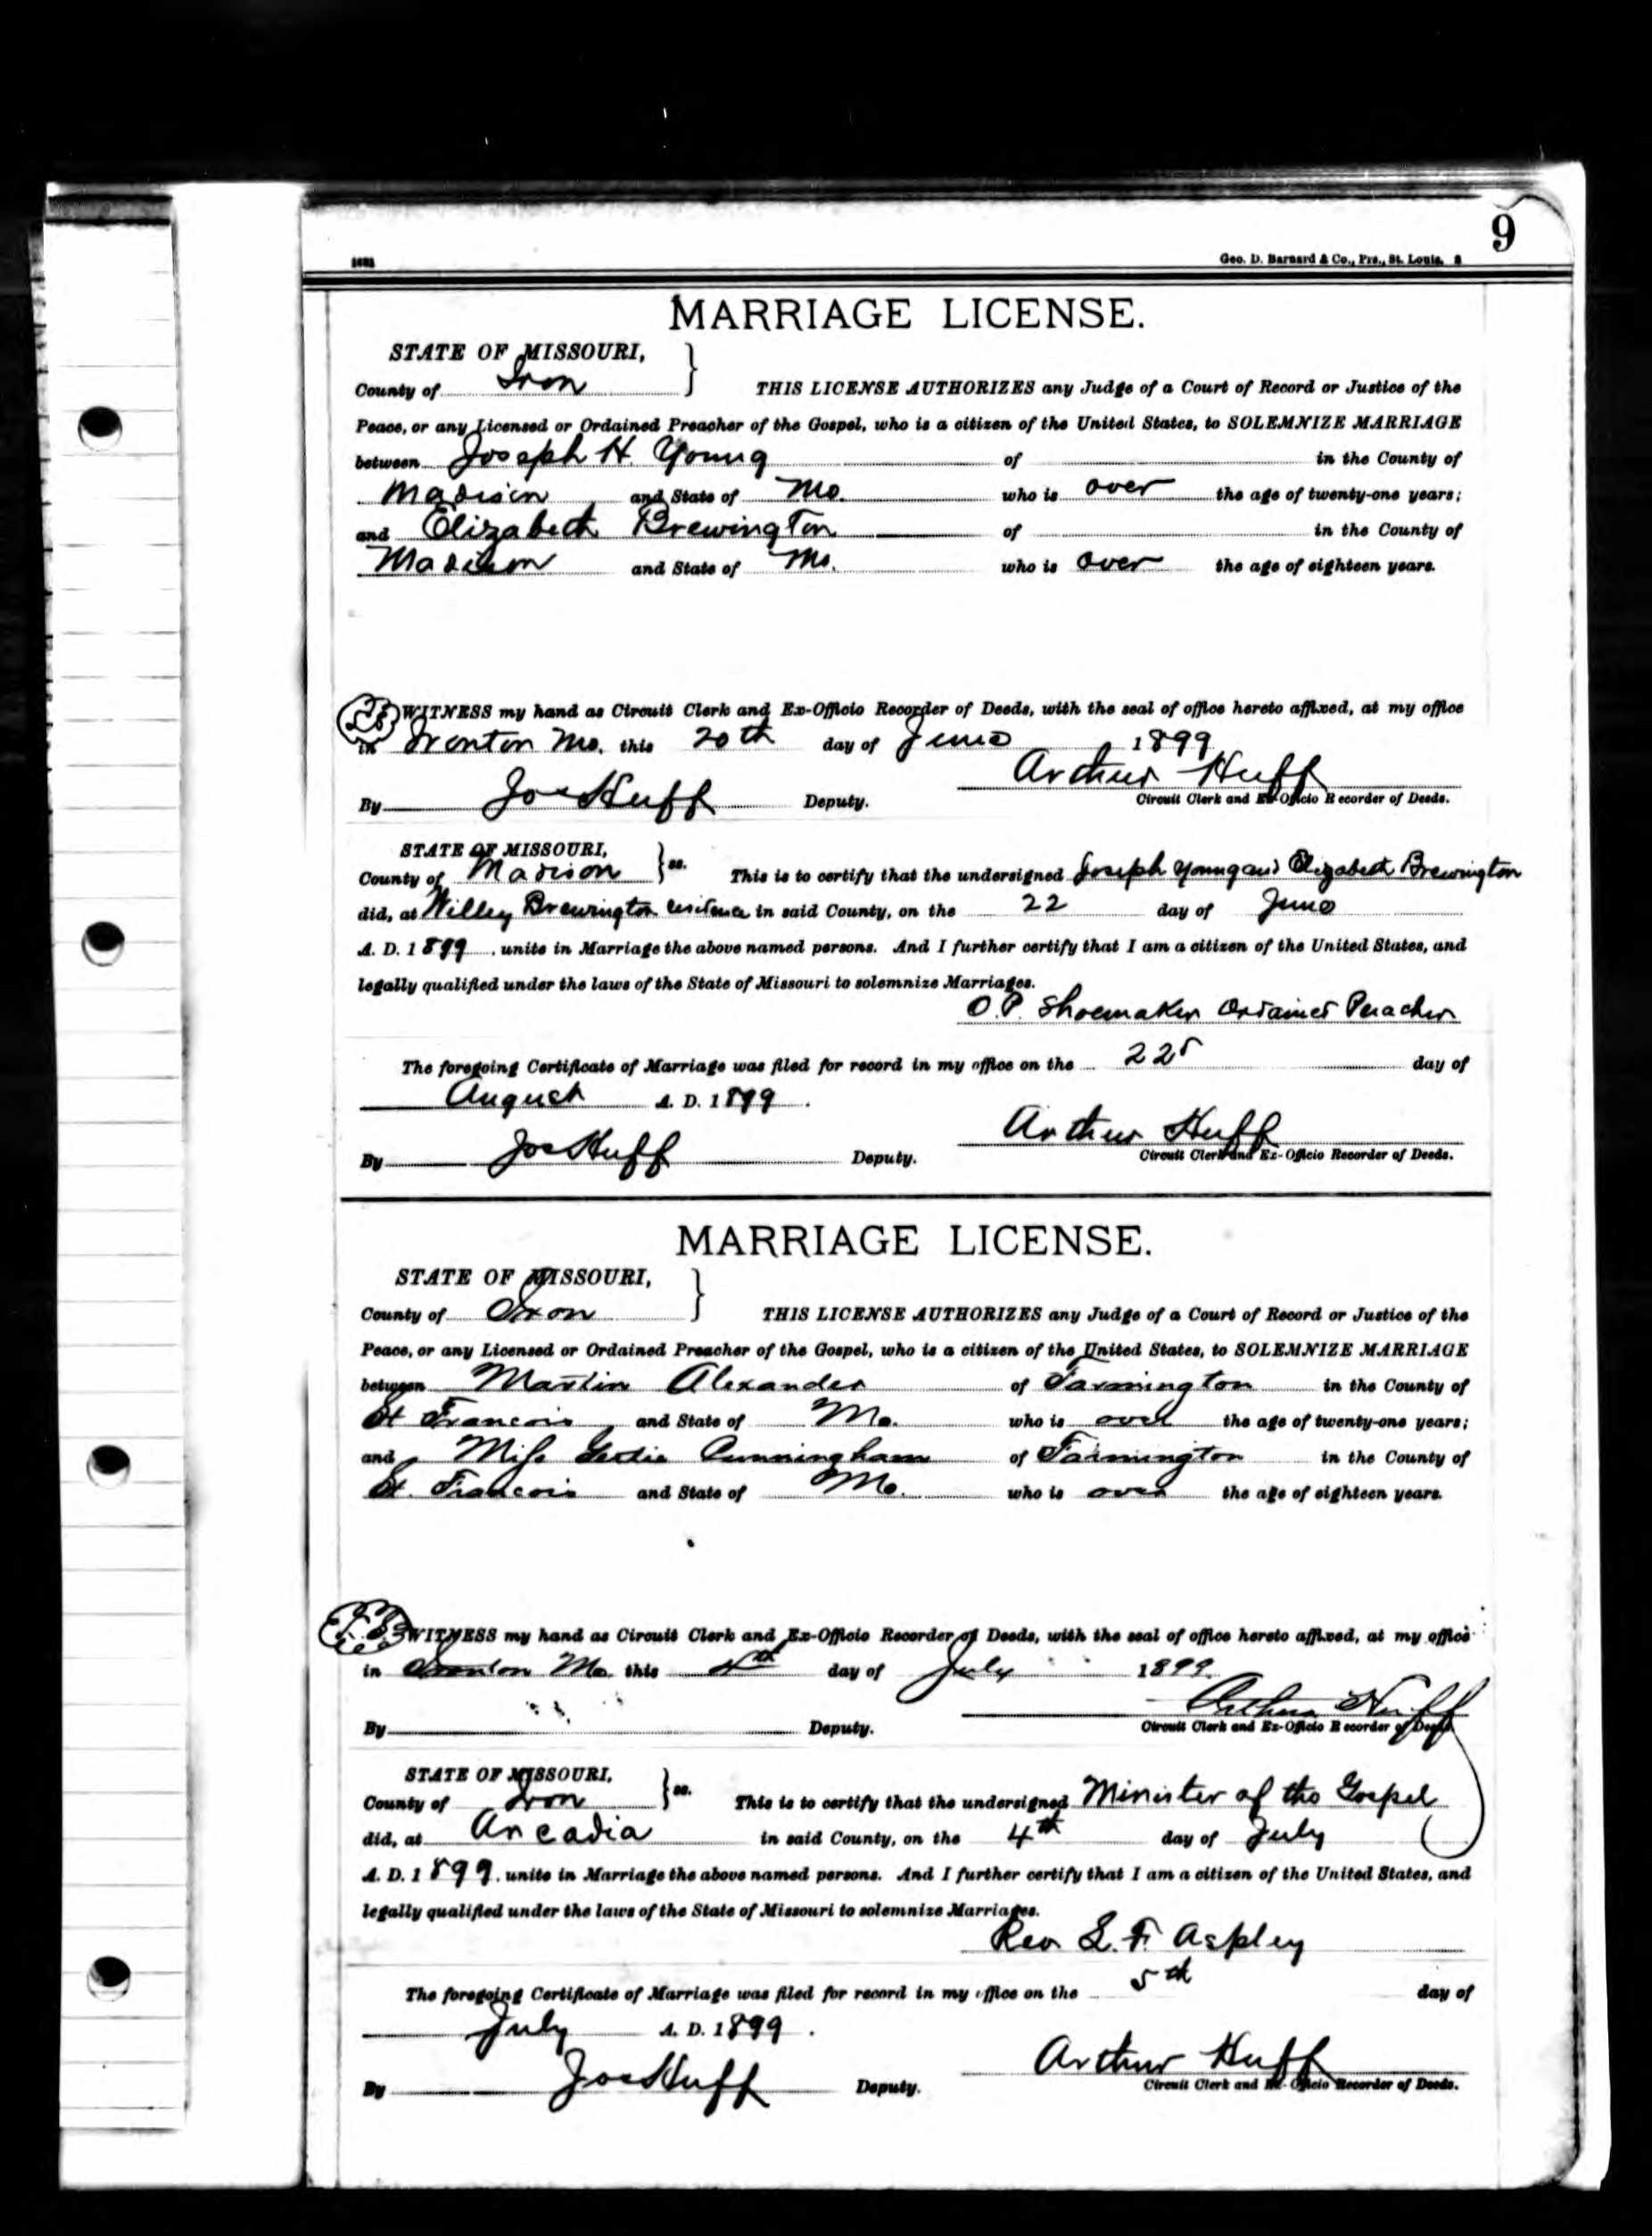 9
Geo. D. Barnard & Co., Prs., St. Louis.
MARRIAGE LICENSE.
STATE OF MISSOURI,
County of Iron THIS LICENSE AUTHORIZES any Judge of a Court of Record or Justice of the
Peace, or any Licensed or Ordained Preacher of the Gospel, who is a citizen of the United States, to SOLEMNIZE MARRIAGE
between Joseph H. Young of in the County of
Madison and State of Mo. who is over the age of twenty-one years;
and Elizabeth Brewington of in the County of
Madison and State of Mo. who is over the age of eighteen years.
WITNESS my hand as Circuit Clerk and Ex-Officio Recorder of Deeds, with the seal of office hereto affixed, at my office
in Ironton Mo. this 20th day of June 1899
Arthur Huff
By Joe Huff Deputy. Circuit Clerk and Ex-Officio Recorder of Deeds.
STATE OF MISSOURI,
County of Madison } ss. This is to certify that the undersigned Joseph Young and Elizabeth Brewington
did, at Willey Brewington residence in said County, on the 22 day of June
A. D. 1899, unite in Marriage the above named persons. And I further certify that I am a citizen of the United States, and
legally qualified under the laws of the State of Missouri to solemnize Marriages.
O. P. Shoemaker Ordained Preacher
The foregoing Certificate of Marriage was filed for record in my office on the day of
August A. D. 1899.
Arthur Huff
By Joe Huff Deputy. Circuit Clerk and Ex-Officio Recorder of Deeds.
MARRIAGE LICENSE.
STATE OF MISSOURI,
County of Iron THIS LICENSE AUTHORIZES any Judge of a Court of Record or Justice of the
Peace, or any Licensed or Ordained Preacher of the Gospel, who is a citizen of the United States, to SOLEMNIZE MARRIAGE
between Martin Alexander of Farmington in the County of
St Francois and State of Mo. who is over the age of twenty-one years;
and Miss Cunningham of Farmington in the County of
St. Francois and State of Mo. who is over the age of eighteen years.
WITNESS my hand as Circuit Clerk and Ex-Officio Recorder of Deeds, with the seal of office hereto affixed, at my office
in Ironton Mo. this 4th day of July 1899.
Arthur Huff
By Deputy. Circuit Clerk and Ex-Officio Recorder of Deeds.
STATE OF MISSOURI,
County of Iron } ss. This is to certify that the undersigned Minister of the Gospel
did, at Arcadia in said County, on the 4th day of July
A. D. 1899. unite in Marriage the above named persons. And I further certify that I am a citizen of the United States, and
legally qualified under the laws of the State of Missouri to solemnize Marriages.
Rev S. F. Aspley
The foregoing Certificate of Marriage was filed for record in my office on the 5th day of
July A. D. 1899.
Arthur Huff
By Joe Huff Deputy. Circuit Clerk and Ex-Officio Recorder of Deeds.